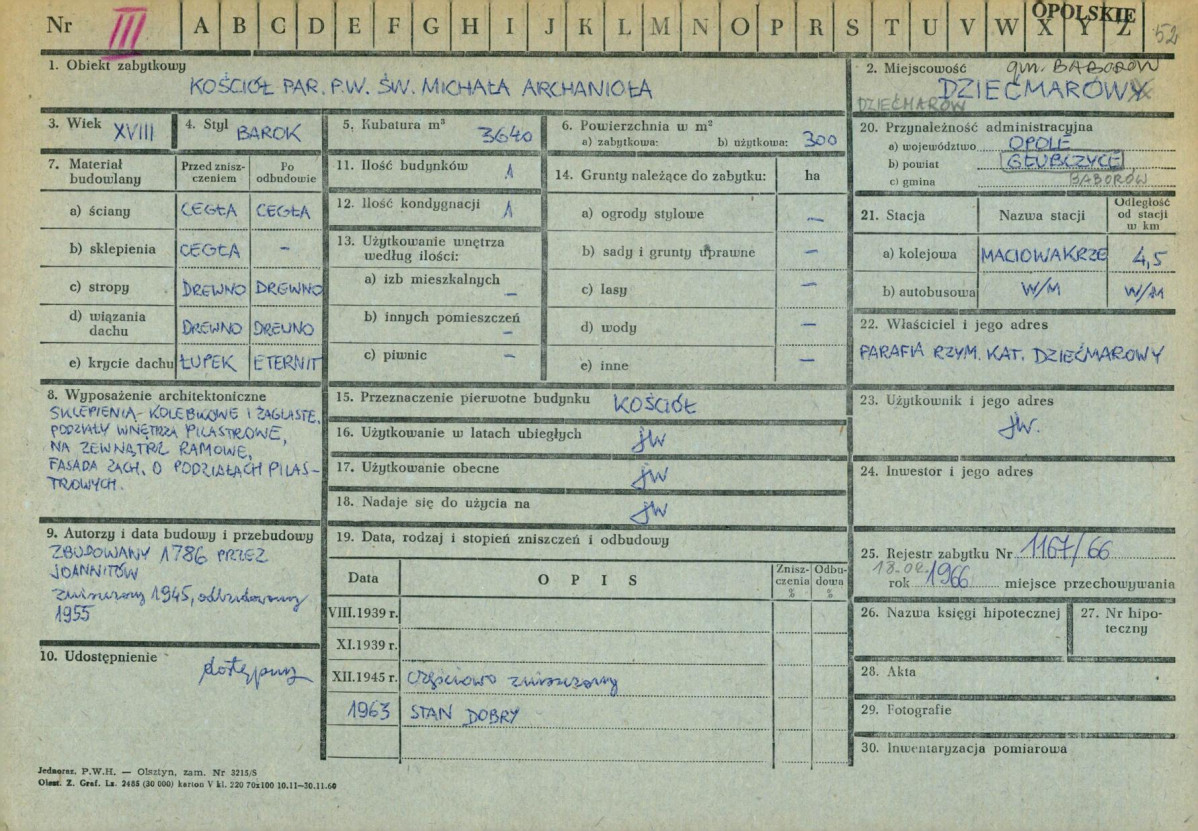 Nr III A B C D E F G H I J K L M N O P R S T U V W X Y Z
OPOLSKIE
52
1. Obiekt zabytkowy
KOŚCIÓŁ PAR. P.W. ŚW. MICHAŁA ARCHANIOŁA
2. Miejscowość gm. BABORÓW
DZIEĆMARÓW
DZIEĆMARÓW
3. Wiek XVIII
4. Styl BAROK
5. Kubatura m³ 3640
6. Powierzchnia w m²
a) zabytkowa: b) użytkowa: 300
7. Materiał budowlany
Przed zniszczeniem
Po odbudowie
a) ściany CEGŁA CEGŁA
b) sklepienia CEGŁA –
c) stropy DREWNO DREWNO
d) wiązania dachu DREWNO DREWNO
e) krycie dachu ŁUPEK ETERNIT
11. Ilość budynków 1
12. Ilość kondygnacji 1
13. Użytkowanie wnętrza według ilości:
a) izb mieszkalnych –
b) innych pomieszczeń –
c) piwnic –
14. Grunty należące do zabytku: ha
a) ogrody stylowe –
b) sady i grunty uprawne –
c) lasy –
d) wody –
e) inne –
20. Przynależność administracyjna
a) województwo OPOLE
b) powiat GŁUBCZYCE
c) gmina BABORÓW
21. Stacja
Nazwa stacji
Odległość od stacji w km
a) kolejowa MACIOWAKRZE 4,5
b) autobusowa W/M W/M
22. Właściciel i jego adres
PARAFIA RZYM. KAT. DZIEĆMAROWY
8. Wyposażenie architektoniczne
SKLEPIENIA - KOLEBKOWE I ŻAGLASTE,
PODZIAŁY WNĘTRZA PILASTROWE,
NA ZEWNĄTRZ RAMOWE,
FASADA ZACH. O PODZIAŁACH PILAS-
TROWYCH.
15. Przeznaczenie pierwotne budynku KOŚCIÓŁ
16. Użytkowanie w latach ubiegłych jw
17. Użytkowanie obecne jw
18. Nadaje się do użycia na jw
23. Użytkownik i jego adres
jw.
24. Inwestor i jego adres
9. Autorzy i data budowy i przebudowy
ZBUDOWANY 1786 PRZEZ
JOANNITÓW
zniszczony 1945, odbudowany
1955
10. Udostępnienie
dostępny
19. Data, rodzaj i stopień zniszczeń i odbudowy
Data
OPIS
Zniszczenia %
Odbudowa %
VIII.1939 r.
XI.1939 r.
XII.1945 r. częściowo zniszczony
1963 STAN DOBRY
25. Rejestr zabytku Nr 1167/66
18.02.
rok 1966 miejsce przechowywania
26. Nazwa księgi hipotecznej
27. Nr hipoteczny
28. Akta
29. Fotografie
30. Inwentaryzacja pomiarowa
Jednoraz. P.W.H. — Olsztyn, zam. Nr 3215/S
Olszt. Z. Graf. Lz. 2485 (30 000) karton V kl. 220 70x100 10.11—30.11.60